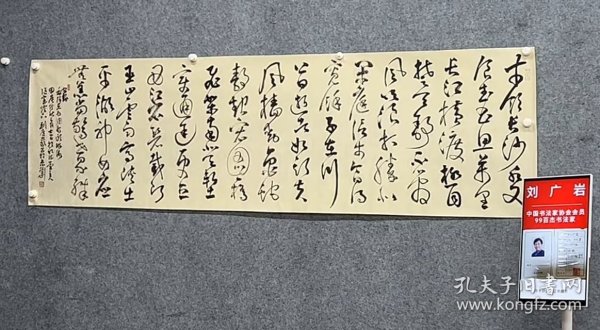 才饮长沙水又
食武昌鱼万里
长江横渡极目
楚天舒不管
风吹浪打胜似
闲庭信步今日得
宽馀子在川
上曰逝者如斯夫
风樯动龟蛇
静起宏图一桥
飞架南北天堑
变通途更立
西江石壁截断
巫山云雨高峡出
平湖神女应
无恙当惊世界殊
刘广岩
中国书法家协会会员
99百杰书法家
孔夫子旧书网
www.kongfz.com